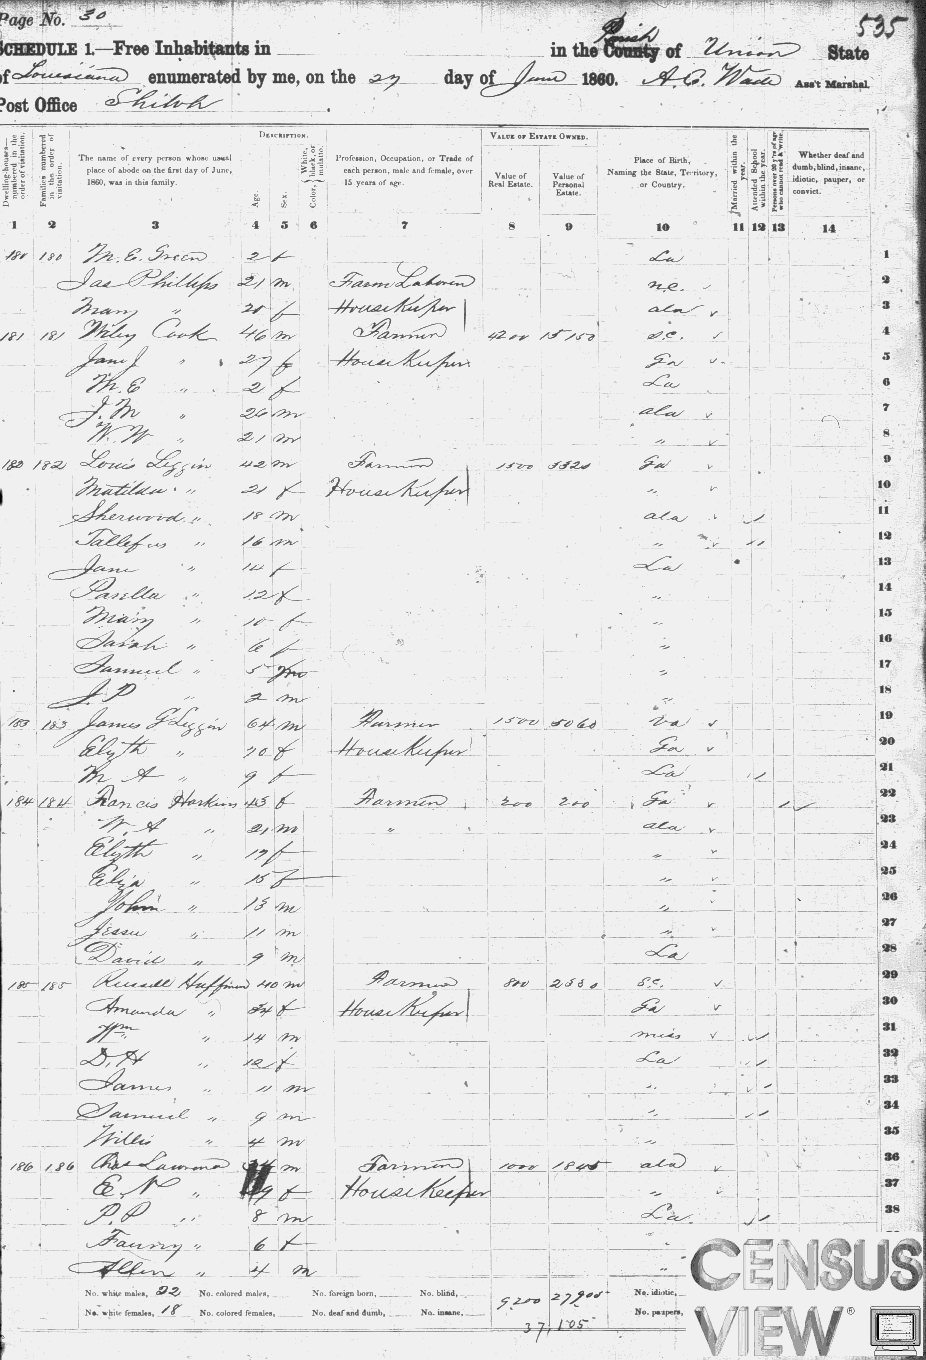 Page No. 30
535
SCHEDULE 1.—Free Inhabitants in in the County Parish of Union State
of Louisiana enumerated by me, on the 27 day of June 1860. A. C. Wade Ass't Marshal.
Post Office Shiloh
Dwelling-houses—numbered in the order of visitation.
Families numbered in the order of visitation.
The name of every person whose usual place of abode on the first day of June, 1860, was in this family.
DESCRIPTION.
Age.
Sex.
Color, White, black, or mulatto.
Profession, Occupation, or Trade of each person, male and female, over 15 years of age.
VALUE OF ESTATE OWNED.
Value of Real Estate.
Value of Personal Estate.
Place of Birth, Naming the State, Territory, or Country.
Married within the year.
Attended School within the year.
Persons over 20 y'rs of age who cannot read & write.
Whether deaf and dumb, blind, insane, idiotic, pauper, or convict.
1 2 3 4 5 6 7 8 9 10 11 12 13 14
180 180 M. E. Green 2 f La 1
Jas Phillips 21 m Farm Laborer N.C. 2
Mary " 20 f HouseKeeper ala 3
181 181 Wiley Cook 46 m Farmer 4200 15150 S.C. 4
Jane J " 27 f HouseKeeper Ga 5
M. E " 2 f La 6
J. M " 26 m ala 7
W. W " 21 m " 8
182 182 Louis Liggin 42 m Farmer 1500 Ga 9
Matilda " f HouseKeeper " 10
Sherwood " 18 m ala 11
" 16 m " 12
Jane " 14 f La 13
" 12 f " 14
Mary " 10 f " 15
Sarah " 6 f " 16
Samuel " 5 m " 17
J. P " 2 m " 18
183 183 James G Liggin 64 m Farmer 1500 5060 Va 19
Elizth " f HouseKeeper Ga 20
M A " 9 f La 21
184 184 Francis Harkins 45 f Farmer 200 200 Ga 22
W. A " 21 m " ala 23
Elizth " f " 24
Eliza " 15 f " 25
John " 13 m " 26
Jesse " 11 m " 27
David " 9 m La 28
185 185 Russell Huffman 40 m Farmer 800 S.C. 29
Amanda " 34 f HouseKeeper Ga 30
Wm " 14 m miss 31
D. H " 12 f La 32
James " 11 m " 33
Samuel " 9 m " 34
Willis " 4 m " 35
186 186 Chas Lawrence m Farmer 1000 1845 ala 36
E. N " f HouseKeeper " 37
P. P " 8 m La 38
Fanny " 6 f "
Allen " 4 m "
No. white males, 22 No. colored males, No. foreign born, No. blind, No. idiotic,
No. white females, 18 No. colored females, No. deaf and dumb, No. insane, 9200 27905 No. paupers,
37,105
CENSUS
VIEW®